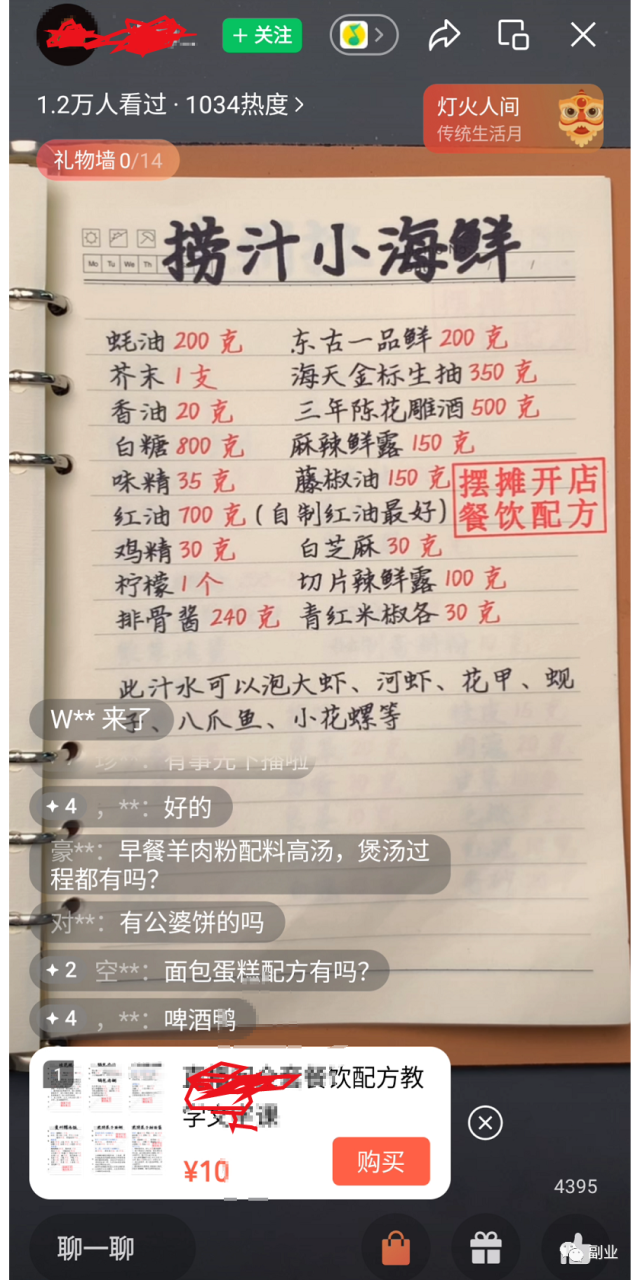 + 关注
1.2万人看过 · 1034热度
灯火人间
传统生活月
礼物墙 0/14
捞汁小海鲜
Mo Tu We Th
蚝油 200 克 东古一品鲜 200 克
芥末 1 支 海天金标生抽 350 克
香油 20 克 三年陈花雕酒 500 克
白糖 800 克 麻辣鲜露 150 克
味精 35 克 藤椒油 150 克
红油 700 克 (自制红油最好)
摆摊开店
餐饮配方
鸡精 30 克 白芝麻 30 克
柠檬 1 个 切片辣鲜露 100 克
排骨酱 240 克 青红米椒各 30 克
此汁水可以泡大虾、河虾、花甲、蚬
、八爪鱼、小花螺等
W** 来了
有事先下播啦
4 , **: 好的
豪**: 早餐羊肉粉配料高汤,煲汤过
程都有吗?
对**: 有公婆饼的吗
2 空**: 面包蛋糕配方有吗?
4 , **: 啤酒鸭
1
饮配方教
学
课
¥10
购买
4395
聊一聊
副业